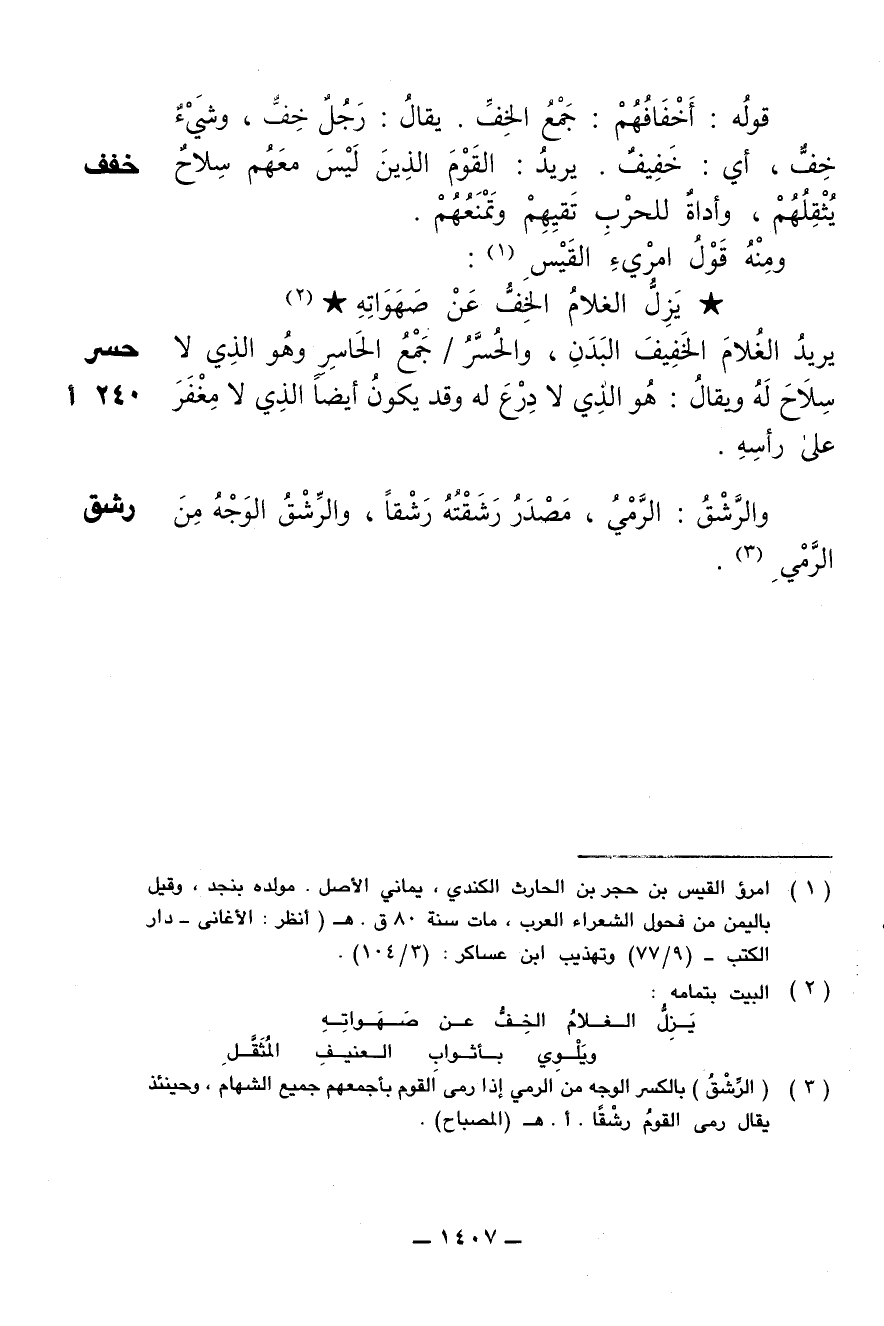 قولُه : أَخْفَافُهُمْ : جَمْعُ الخِفِّ . يقالُ : رَجُلٌ خِفٌّ ، وشَيْءٌ
خِفٌّ ، أي : خَفِيفٌ . يريدُ : القَوْمَ الذِينَ لَيْسَ معَهُم سِلاحٌ خفف
يُثْقِلُهُمْ ، وأداةٌ للحرْبِ تَقيِهِمْ وتَمْنَعُهُمْ .
ومِنْهُ قَوْلُ امرْيءِ القَيْسِ (١) :
★ يَزِلُّ الغلامُ الخِفُّ عَنْ صَهَوَاتِهِ ★ (٢)
يريدُ الغُلامَ الخَفِيفَ البَدَنِ ، والحُسَّرُ / جَمْعُ الحَاسِرِ وهُو الذِي لا حسر
سِلَاحَ لَهُ ويقالُ : هُو الذِي لا دِرْعَ له وقد يكونُ أيضاً الذِي لا مِغْفَرَ ٢٤٠ أ
علىٰ رأسِهِ .
والرَّشْقُ : الرَّمْيُ ، مَصْدَرُ رَشَقْتُهُ رَشْقاً ، والرِّشْقُ الوَجْهُ مِنَ رشق
الرَّمْيِ (٣) .
(١) امرؤ القيس بن حجر بن الحارث الكندي ، يماني الأصل . مولده بنجد ، وقيل
باليمن من فحول الشعراء العرب ، مات سنة ٨٠ ق . هـ ( أنظر : الأغانى - دار
الكتب - (٩/٧٧) وتهذيب ابن عساكر : (٣/١٠٤) .
(٢) البيت بتمامه :
يَـزِلُّ الـغـلامُ الخِـفُّ عـن صَـهَـواتِـهِ
ويَلْـوِي بـأثـوابِ الـعنيـفِ المُثَقَّـلِ
(٣) ( الرِّشْقُ ) بالكسر الوجه من الرمي إذا رمى القوم بأجمعهم جميع الشهام ، وحينئذ
يقال رمى القومُ رشْقًا . أ . هـ (المصباح) .
— ١٤٠٧ —